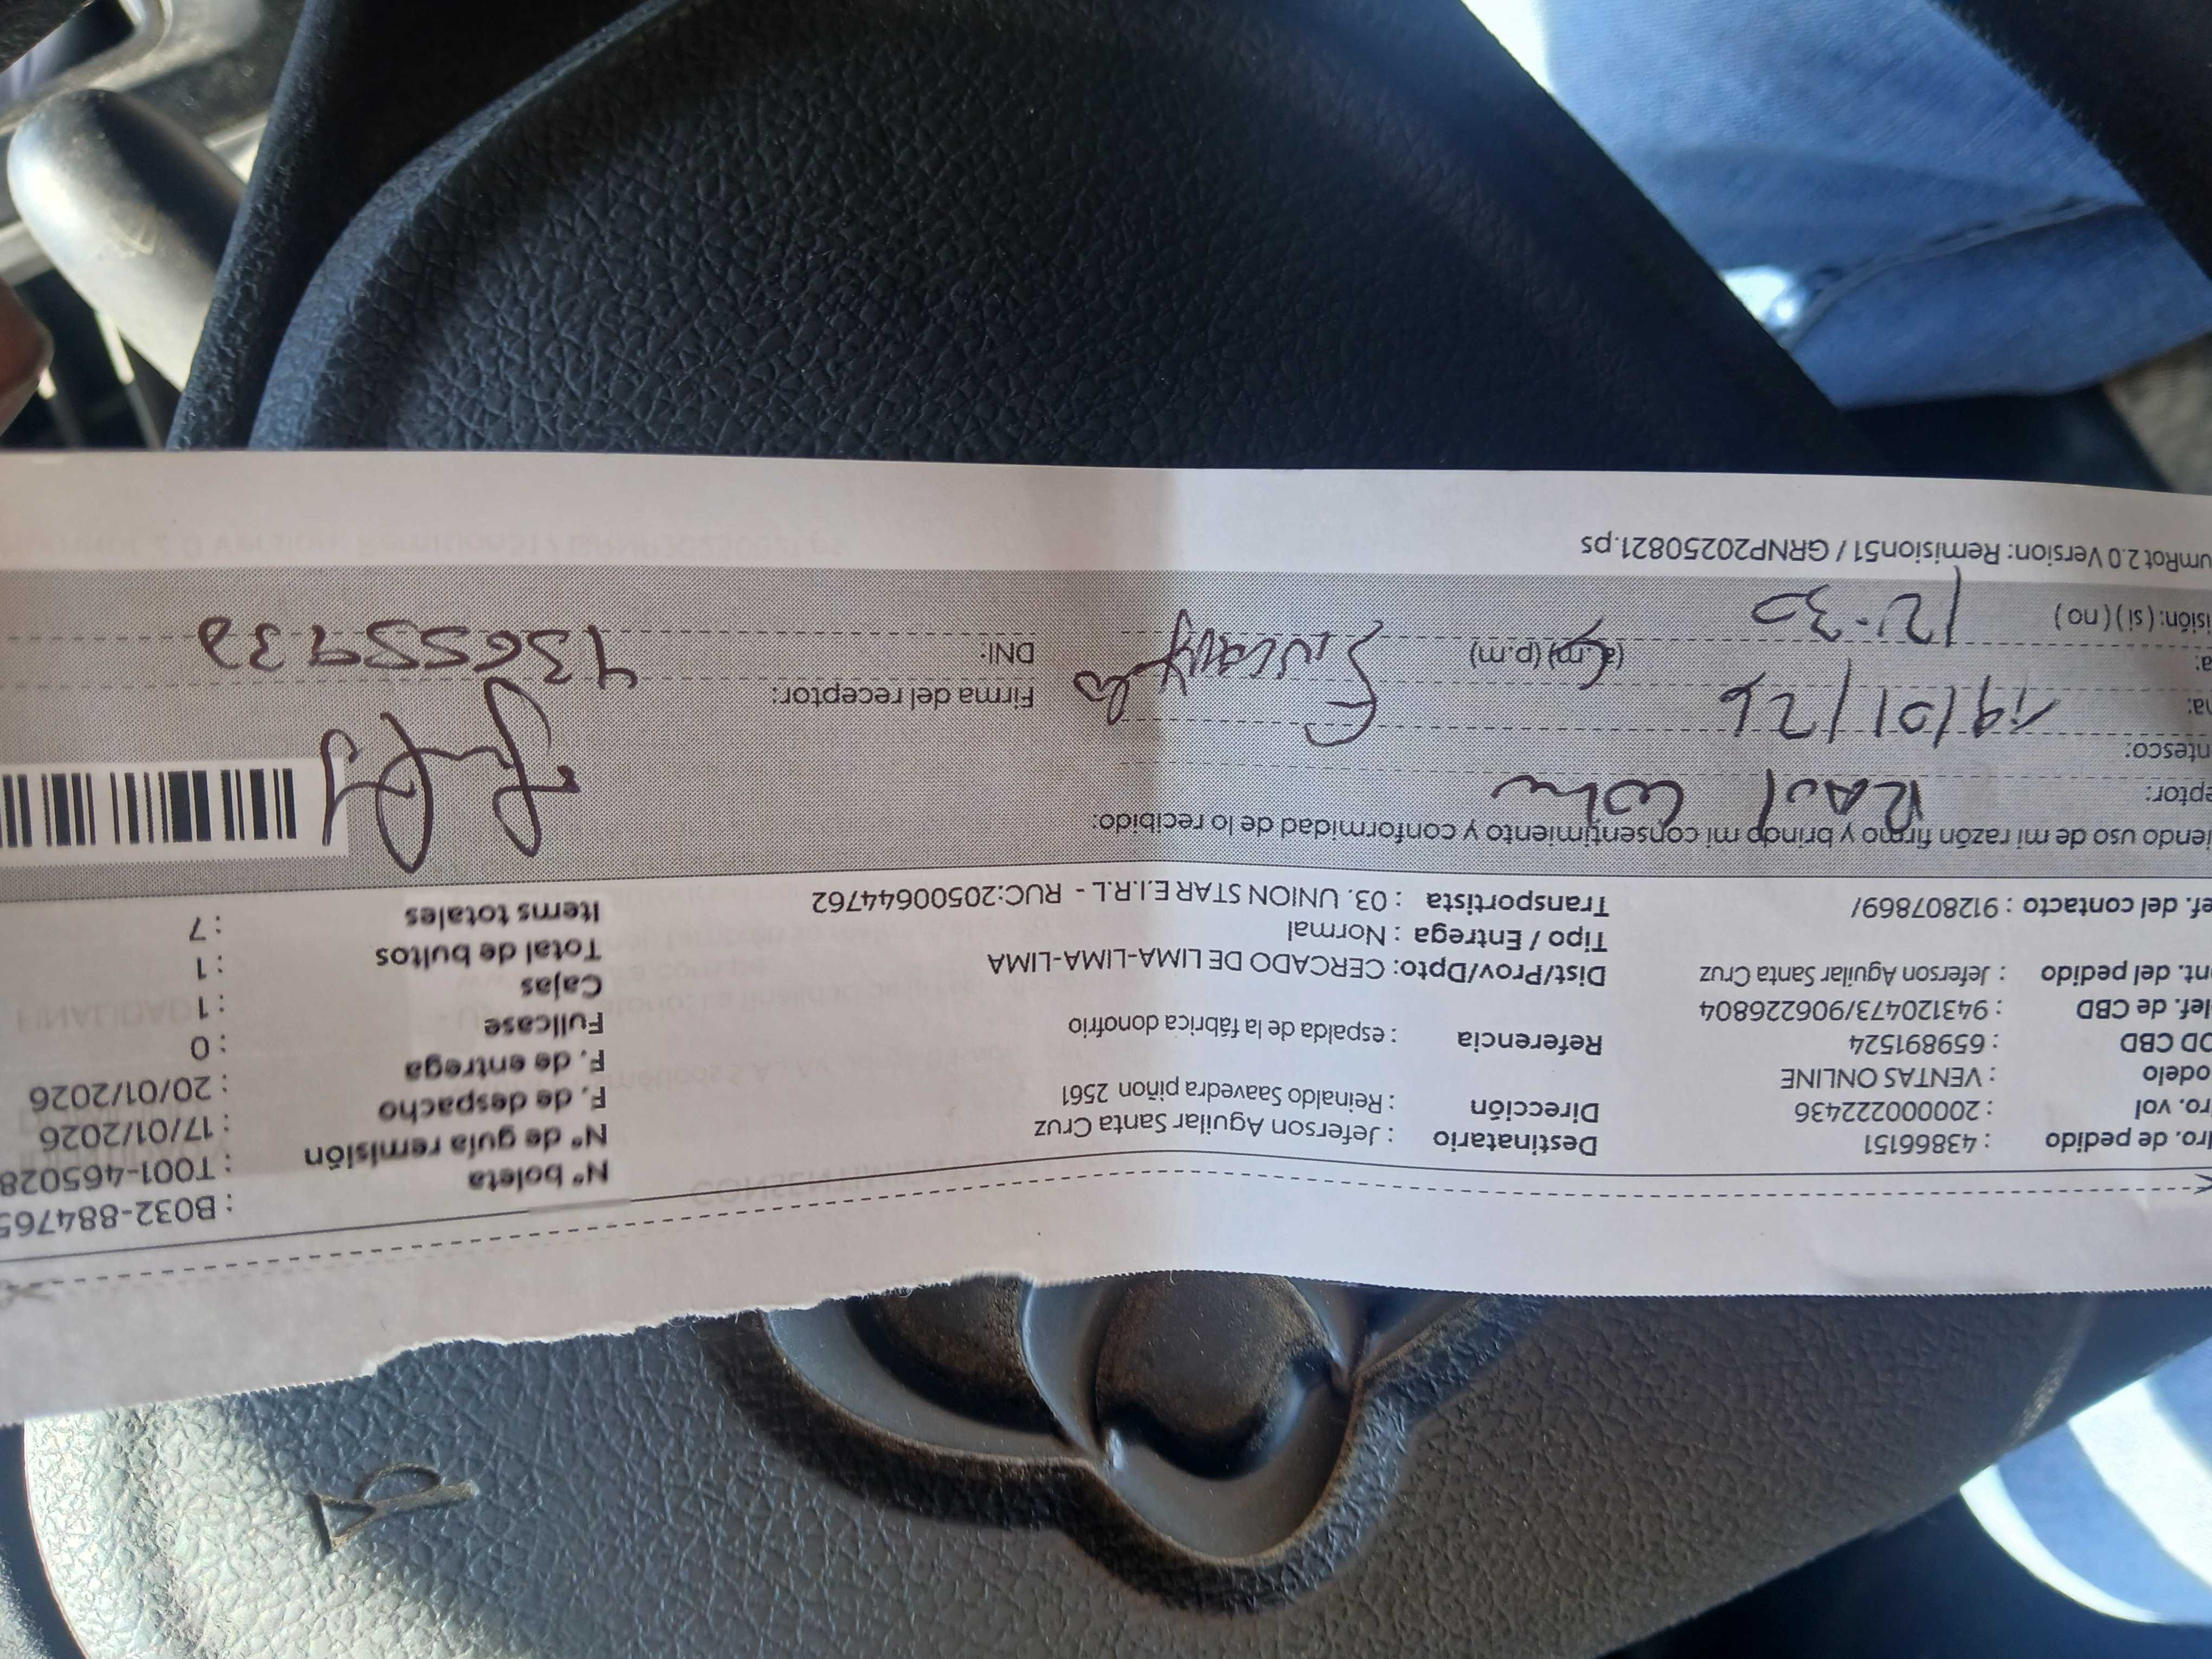 ro. de pedido : 43866151
ro. vol : 200000222436
odelo : VENTAS ONLINE
OD CBD : 659891524
lef. de CBD : 943120473/906226804
nt. del pedido : Jeferson Aguilar Santa Cruz
ef. del contacto : 912807869/
Destinatario : Jeferson Aguilar Santa Cruz
Dirección : Reinaldo Saavedra piñon 2561
Referencia : espalda de la fábrica donofrio
Dist/Prov/Dpto: CERCADO DE LIMA-LIMA-LIMA
Tipo / Entrega : Normal
Transportista : 03. UNION STAR E.I.R.L - RUC:20500644762
N° boleta : B032-884765
N° de guía remisión : T001-465028
F. de despacho : 17/01/2026
F. de entrega : 20/01/2026
Fullcase : 0
Cajas : 1
Total de bultos : 1
Items totales : 7
iendo uso de mi razón firmo y brindo mi consentimiento y conformidad de lo recibido:
eptor: RAUl
ntesco:
na: 19/01/26
a: 12:30 (a.m) (p.m)
isión: ( si ) ( no )
Firma del receptor:
DNI:
umRot 2.0 Version: Remision51 / GRNP20250821.ps